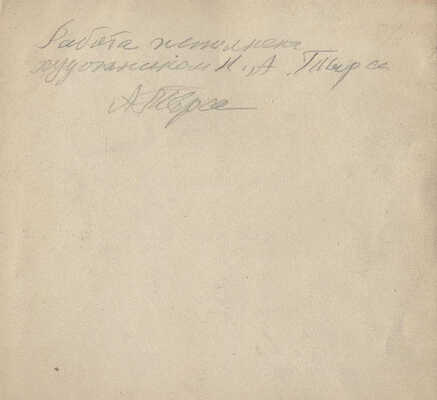 Работа исполнена
художником Н. А. Тырса
А Тырса